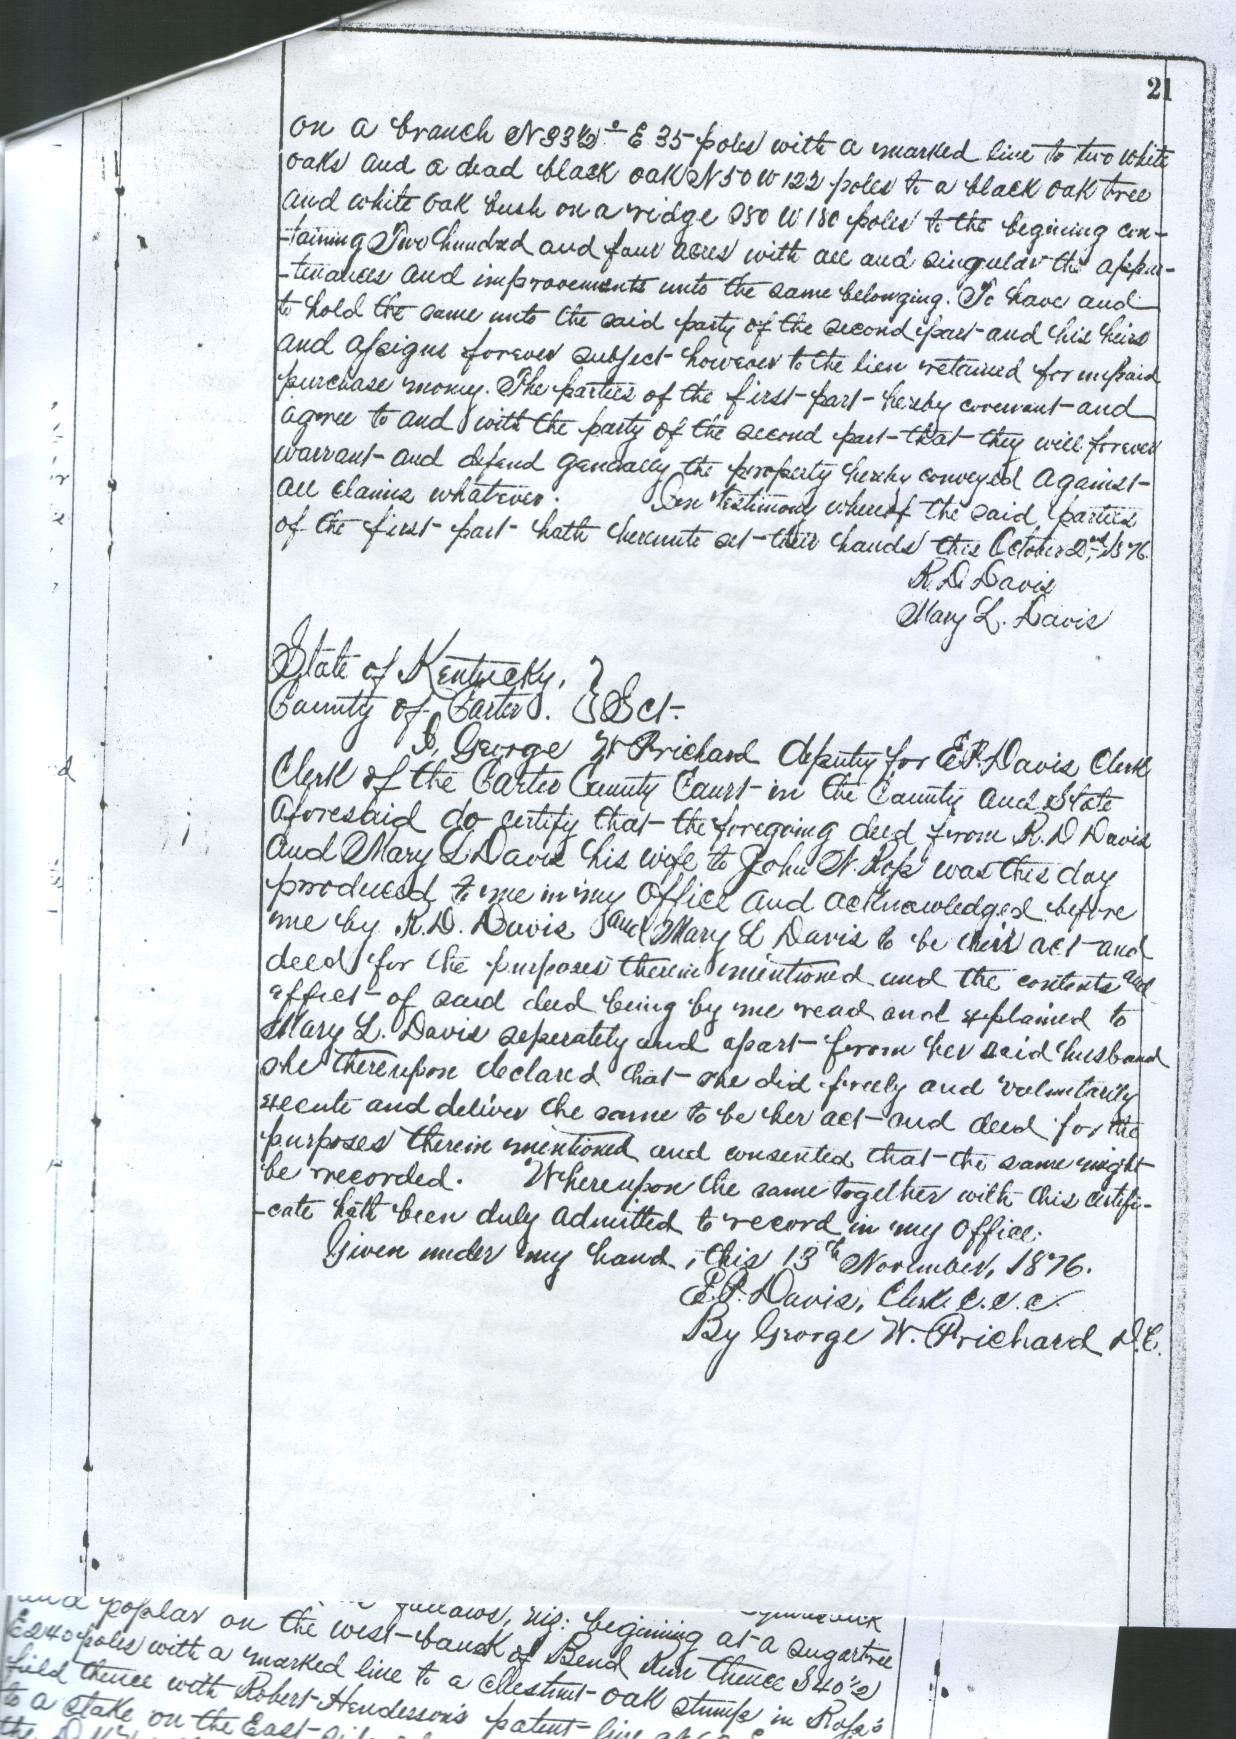 21
on a branch N 33½° E 35 poles with a marked line to two white
oaks and a dead black oak N 50 W 122 poles to a black oak tree
and white oak bush on a ridge S50 W 180 poles to the begining con-
-taining Two hundred and four acres with all and singular the appur-
-tenances and improvements unto the same belonging. To have and
to hold the same unto the said party of the second part and his heirs
and assigns forever subject however to the lien retained for unpaid
purchase money. The parties of the first part hereby covenant and
agree to and with the party of the second part that they will forever
warrant and defend generally the property hereby conveyed against
all claims whatever. In testimony whereof the said parties
of the first part hath hereunto set their hands this October 2nd, 1876.
R. D. Davis
Mary L. Davis
State of Kentucky, }
County of Carter. } Sct.
I, George W Prichard deputy for E.P. Davis Clerk
Clerk of the Carter County Court in the County and State
aforesaid do certify that the foregoing deed from R. D Davis
and Mary L Davis his wife to John N. Ross was this day
produced to me in my Office and acknowledged before
me by R. D. Davis and Mary L Davis to be their act and
deed for the purposes therein mentioned and the contents and
effect of said deed being by me read and explained to
Mary L. Davis seperately and apart from her said husband
she thereupon declared that she did freely and voluntarily
execute and deliver the same to be her act and deed for the
purposes therein mentioned and consented that the same might
be recorded. Whereupon the same together with this certifi-
-cate hath been duly admitted to record in my Office.
Given under my hand, this 13th November, 1876.
E.P. Davis, Clerk C.C.C.
By George W. Prichard D.C.
follows, viz: begining at a sugartree
and poplar on the west bank of Bend Run thence S40½
E240 poles with a marked line to a Chestnut oak stump in Ross's
field thence with Robert Henderson's patent line
to a stake on the East